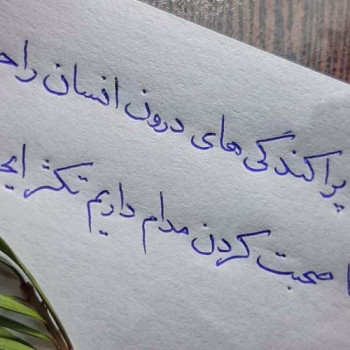 پراکندگی های درون انسان را
صحبت کردن مدام داریم تکثر